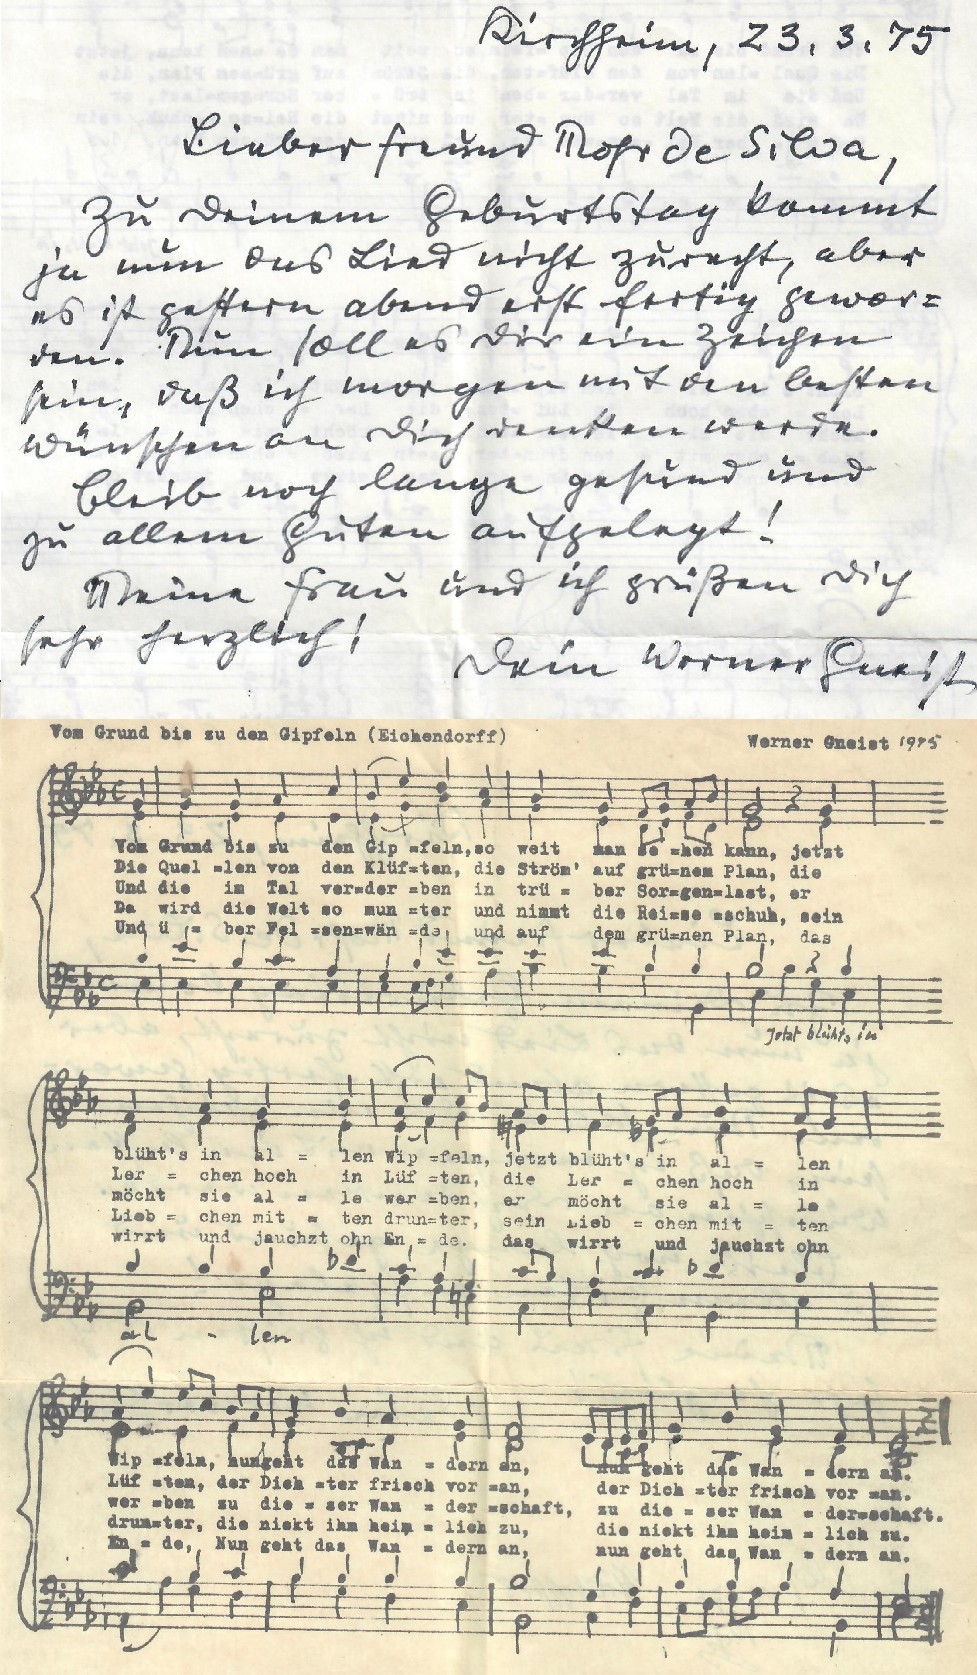 Kirchheim, 23. 3. 75
Lieber Freund Mohr de Silva,
Zu Deinem Geburtstag kommt
ja nun das Lied nicht zurecht, aber
es ist gestern abend erst fertig gewor=
den. Nun soll es Dir ein Zeichen
sein, daß ich morgen mit den besten
Wünschen an Dich denken werde.
Bleib noch lange gesund und
zu allem Guten aufgelegt!
Meine Frau und ich grüßen Dich
sehr herzlich!
Dein Werner Gneist
Vom Grund bis zu den Gipfeln (Eichendorff)
Werner Gneist 1975
Vom Grund bis zu den Gip =feln, so weit man se =hen kann, jetzt
Die Quel =len von den Klüf=ten, die Ström' auf grü=nem Plan, die
Und die im Tal ver=der =ben in trü = ber Sor=gen=last, er
Da wird die Welt so mun =ter und nimmt die Rei=se =schuh, sein
Und ü = ber Fel =sen=wän =de, und auf dem grü=nen Plan, das
Jetzt blüht's in
blüht's in al = len Wip =feln, jetzt blüht's in al = len
Ler = chen hoch in Lüf =ten, die Ler = chen hoch in
möcht sie al = le wer =ben, er möcht sie al = le
Lieb = chen mit = ten drun=ter, sein Lieb = chen mit = ten
wirrt und jauchzt ohn En = de. das wirrt und jauchzt ohn
al - len
Wip =feln, nun geht das Wan = dern an, nun geht das Wan = dern an.
Lüf =ten, der Dich =ter frisch vor =an, der Dich =ter frisch vor =an.
wer =ben zu die = ser Wan = der =schaft, zu die = ser Wan = der=schaft.
drun=ter, die nickt ihm heim = lich zu, die nickt ihm heim = lich zu.
En = de, Nun geht das Wan = dern an, nun geht das Wan = dern an.